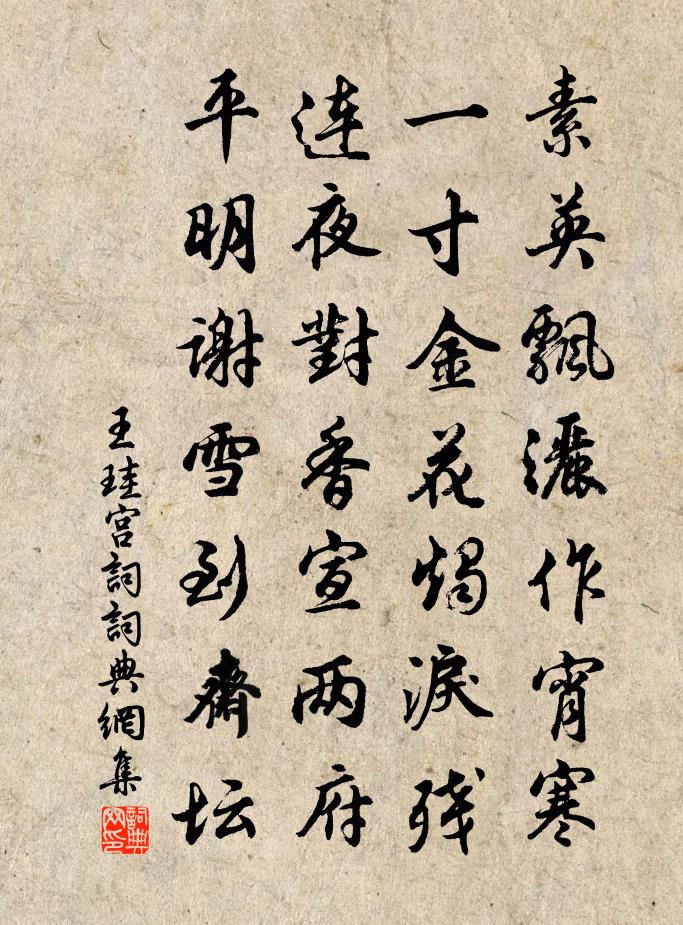 素英飄灑作宵寒
一寸金花燭淚残
連夜對香宣两府
平明謝雪到齋坛
王珪宫詞詞典網集
詞典网印